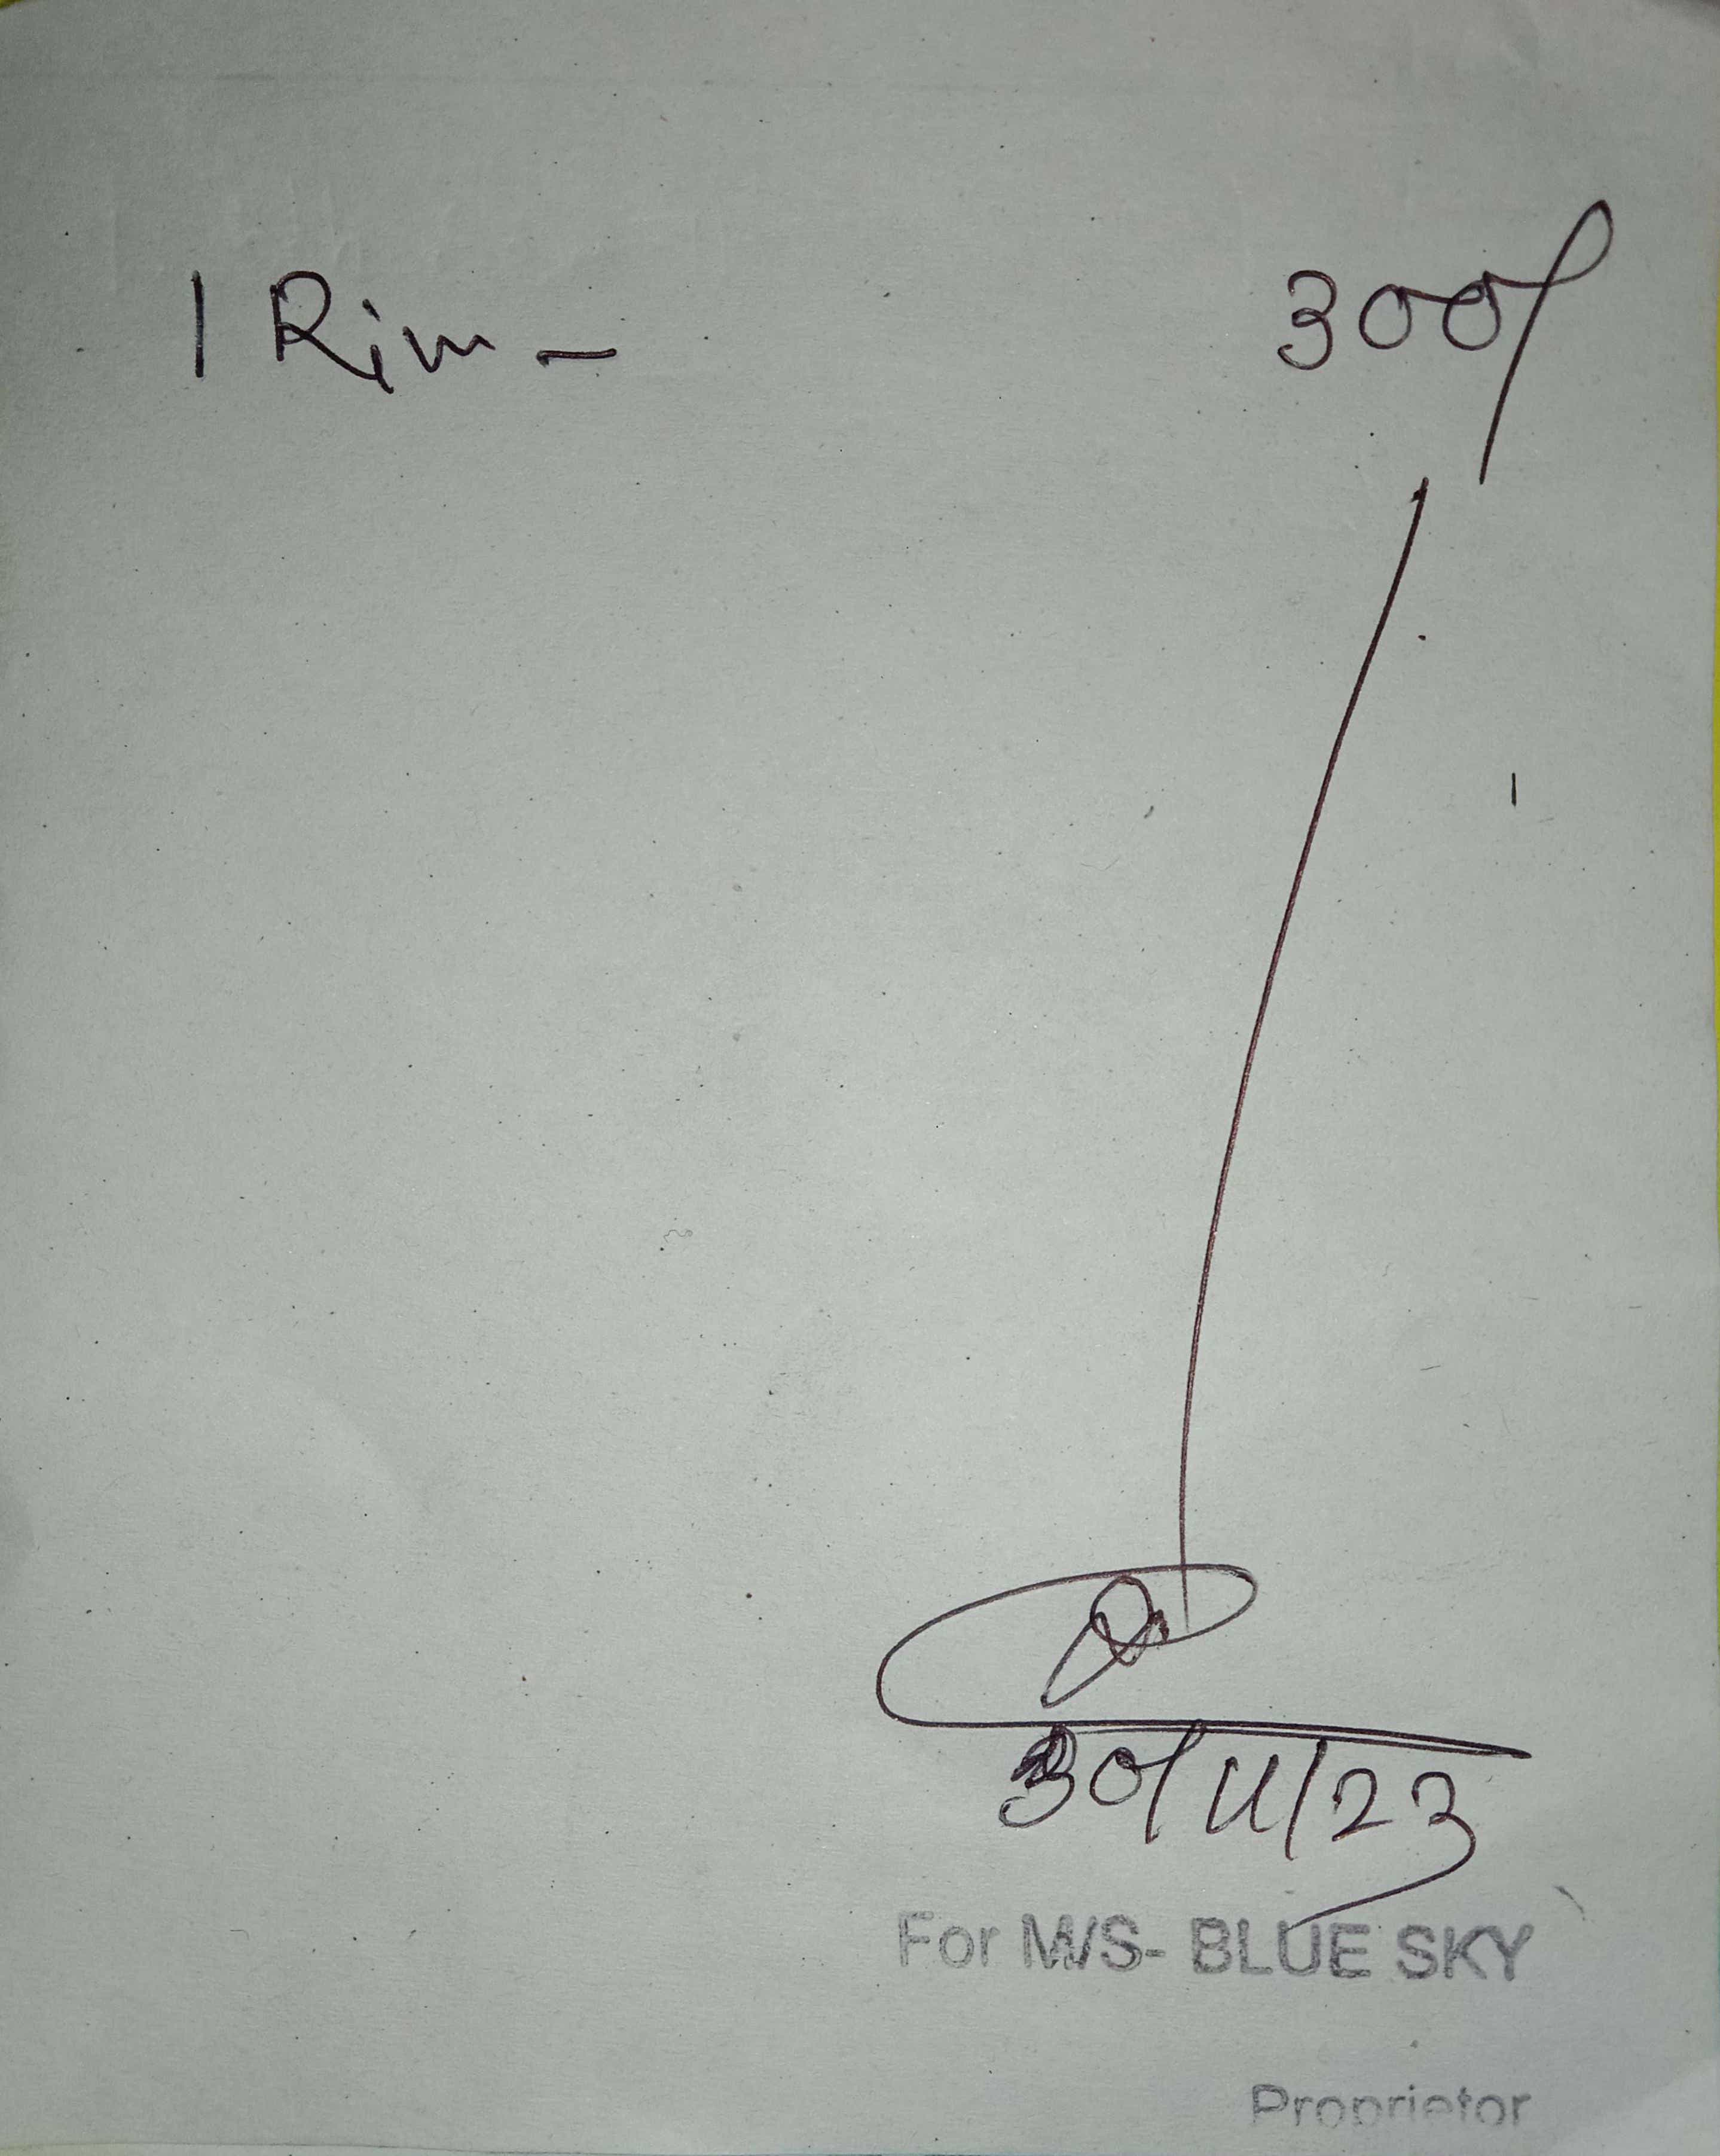 1 Rim - 300/
30/11/23
For M/S- BLUE SKY
Proprietor